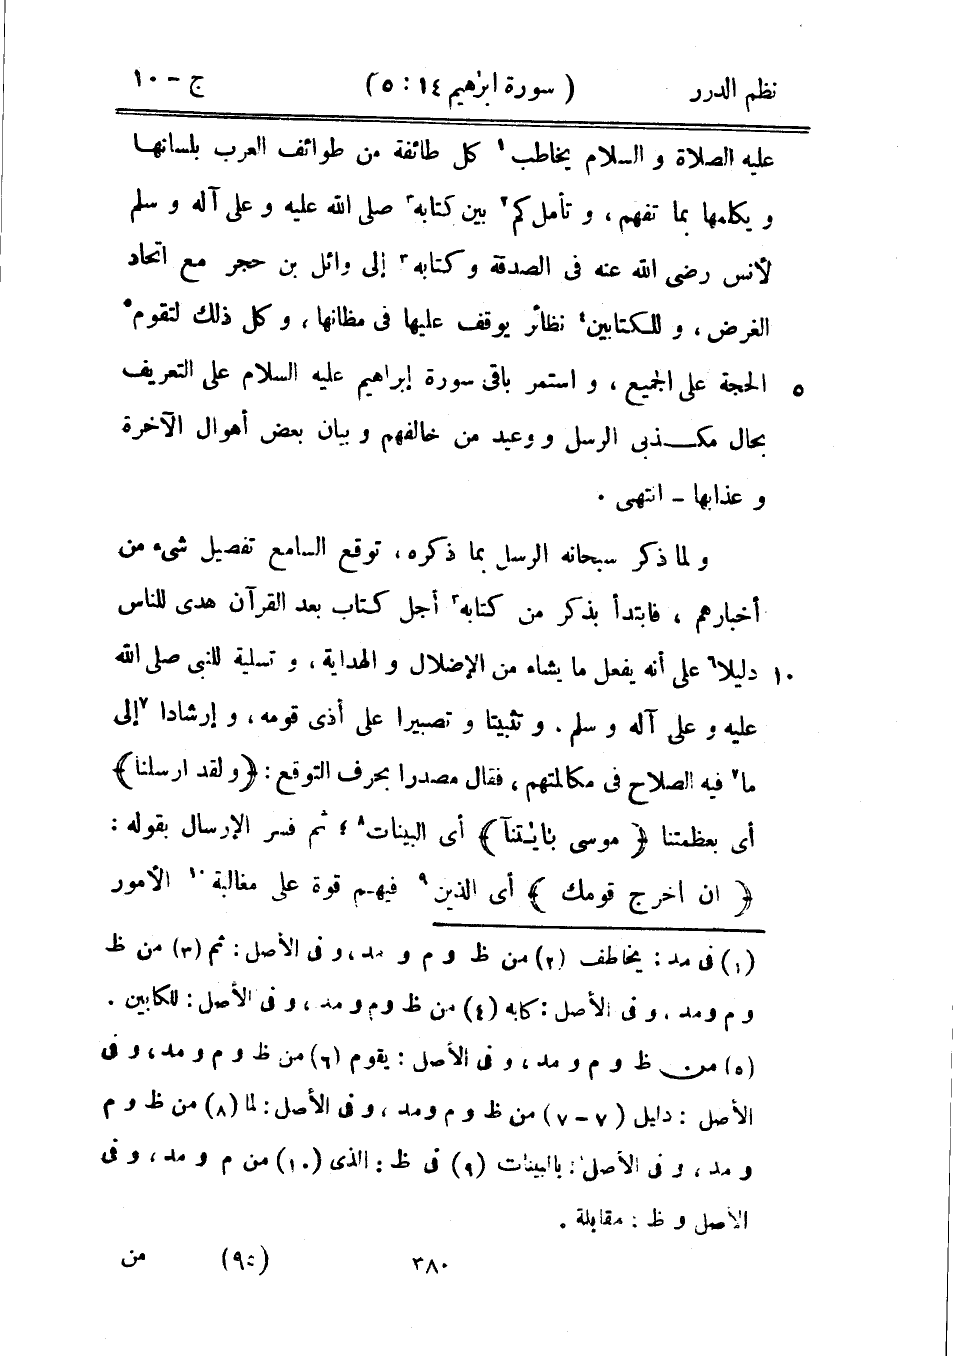 نظم الدرر ( سورة ابرٰهيم ١٤ : ٥ ) ج - ١٠
عليه الصلاة و السلام يخاطب١ كل طائفة من طوائف العرب بلسانها
و يكلمها بما تفهم ، و تأمل كم٢ بين كتابه٣ صلى الله عليه و على آله و سلم
لأنس رضى الله عنه فى الصدقة و كتابه٣ إلى وائل بن حجر مع اتحاد
الغرض ، و للكتابين٤ نظائر يوقف عليها فى مظانها ، و كل ذلك لتقوم٥
الحجة على الجميع ، و استمر باقى سورة إبراهيم عليه السلام على التعريف ٥
بحال مكذبى الرسل و وعيد من خالفهم و بيان بعض أهوال الآخرة
و عذابها - انتهى .
و لما ذكر سبحانه الرسل بما ذكره ، توقع السامع تفصيل شىء من
أخبارهم ، فابتدأ بذكر من كتابه٣ أجل كتاب بعد القرآن هدى للناس
دليلا٦ على أنه يفعل ما يشاء من الإضلال و الهداية ، و تسلية للنبى صلى الله ١٠
عليه و على آله و سلم . و تثبيتا و تصبيرا على أذى قومه ، و إرشادا ٧إلى
ما٧ فيه الصلاح فى مكالمتهم ، فقال مصدرا بحرف التوقع : ﴿ و لقد ارسلنا ﴾
أى بعظمتنا ﴿ موسى باٰيٰتنآ ﴾ أى البينات٨ ؛ ثم فسر الإرسال بقوله :
﴿ ان اخرج قومك ﴾ أى الذين٩ فيهم قوة على مغالبة١٠ الأمور
(١) فى مد : يخاطف (٢) من ظ و م و مد ، و فى الأصل : ثم (٣) من ظ
و م و مد ، و فى الأصل : كابه (٤) من ظ و م و مد ، و فى الأصل : للكابين .
(٥) من ظ و م و مد ، و فى الأصل : يقوم (٦) من ظ و م و مد ، و فى
الأصل : دايل (٧ - ٧) من ظ و م و مد ، و فى الأصل : لما (٨) من ظ و م
و مد ، و فى الأصل : بالبينات (٩) فى ظ : الذى (١٠) من م و مد ، و فى
الأصل و ظ : مقابلة .
٣٨٠ من